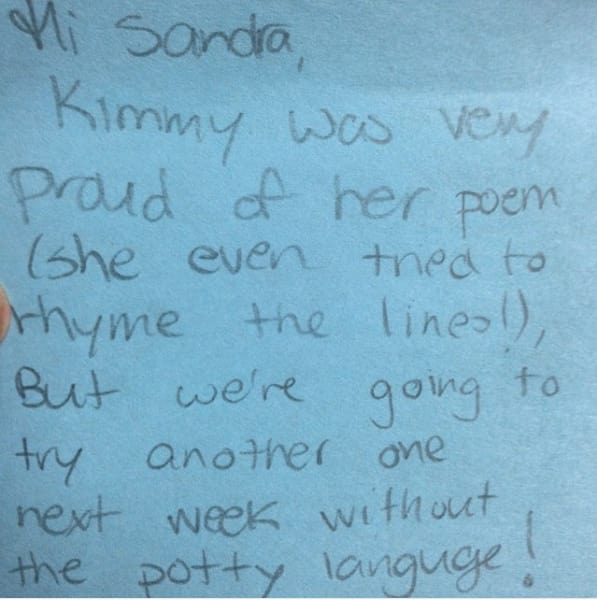 Hi Sandra,
Kimmy was very
proud of her poem
(she even tried to
rhyme the lines!),
But we're going to
try another one
next week without
the potty languge!